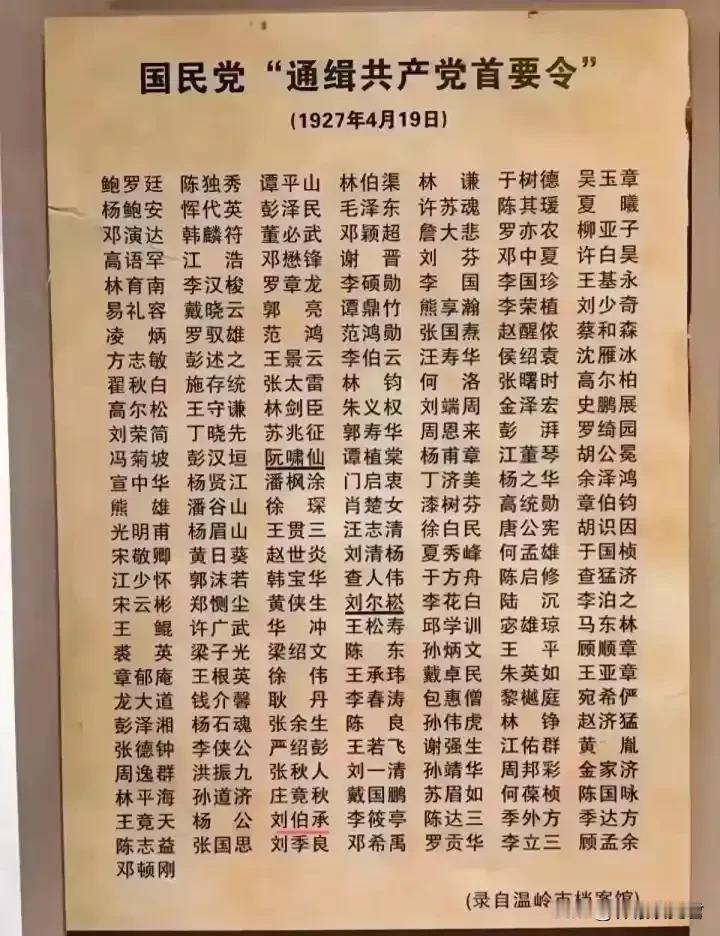 国民党“通缉共产党首要令”
(1927年4月19日)
鲍罗廷 陈独秀 谭平山 林伯渠 林 谦 于树德 吴玉章
杨鲍安 恽代英 彭泽民 毛泽东 许苏魂 陈其瑗 夏 曦
邓演达 韩麟符 董必武 邓颖超 詹大悲 罗亦农 柳亚子
高语罕 江 浩 邓懋锋 谢 晋 刘 芬 邓中夏 许白昊
林育南 李汉梭 罗章龙 李硕勋 李 国 李国珍 王基永
易礼容 戴晓云 郭 亮 谭鼎竹 熊享瀚 李荣植 刘少奇
凌 炳 罗驭雄 范 鸿 范鸿勋 张国焘 赵醒侬 蔡和森
方志敏 彭述之 王景云 李伯云 汪寿华 侯绍裒 沈雁冰
翟秋白 施存统 张太雷 林 钧 何 洛 张曙时 高尔柏
高尔松 王守谦 林剑臣 朱义权 刘端周 金泽宏 史鹏展
刘荣简 丁晓先 苏兆征 郭寿华 周恩来 彭 湃 罗绮园
冯菊坡 彭汉垣 阮啸仙 谭植棠 杨甫章 江董琴 胡公冕
宣中华 杨贤江 潘枫涂 门启衷 丁济美 杨之华 余泽鸿
熊 雄 潘谷山 徐 琛 肖楚女 漆树芬 高统勋 章伯钧
光明甫 杨眉山 王贯三 汪志清 徐白民 唐公宪 胡识因
宋敬卿 黄日葵 赵世炎 刘清杨 夏秀峰 何孟雄 于国桢
江少怀 郭沫若 韩宝华 查人伟 于方舟 陈启修 查猛济
宋云彬 郑恻尘 黄侠生 刘尔崧 李花白 陆 沉 李泊之
王 鲲 许广武 华 冲 王松寿 邱学训 宓雄琼 马东林
裘 英 梁子光 梁绍文 陈 东 孙炳文 王 平 顾顺章
章郁庵 王根英 徐 伟 王承玮 戴卓民 朱英如 王亚章
龙大道 钱介馨 耿 丹 李春涛 包惠僧 黎樾庭 宛希俨
彭泽湘 杨石魂 张余生 陈 良 孙伟虎 林 铮 赵济猛
张德钟 李侠公 严绍彭 王若飞 谢强生 江佑群 黄 胤
周逸群 洪振九 张秋人 刘一清 孙靖华 周邦彩 金家济
林平海 孙道济 庄竟秋 戴国鹏 苏眉如 何葆桢 陈国咏
王竟天 杨 公 刘伯承 李筱亭 陈达三 季外方 季达方
陈志益 张国思 刘季良 邓希禹 罗贡华 李立三 顾孟余
邓顿刚
(录自温岭市档案馆)